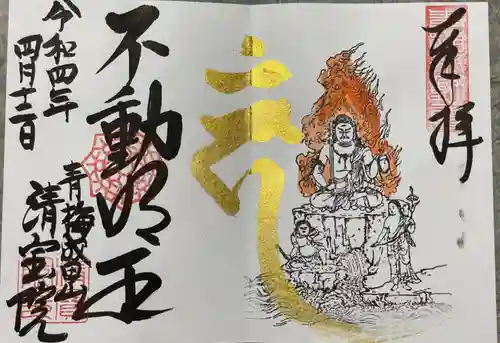 奉拝
不動明王
令和四年
四月十二日
青梅成田山
清宝院